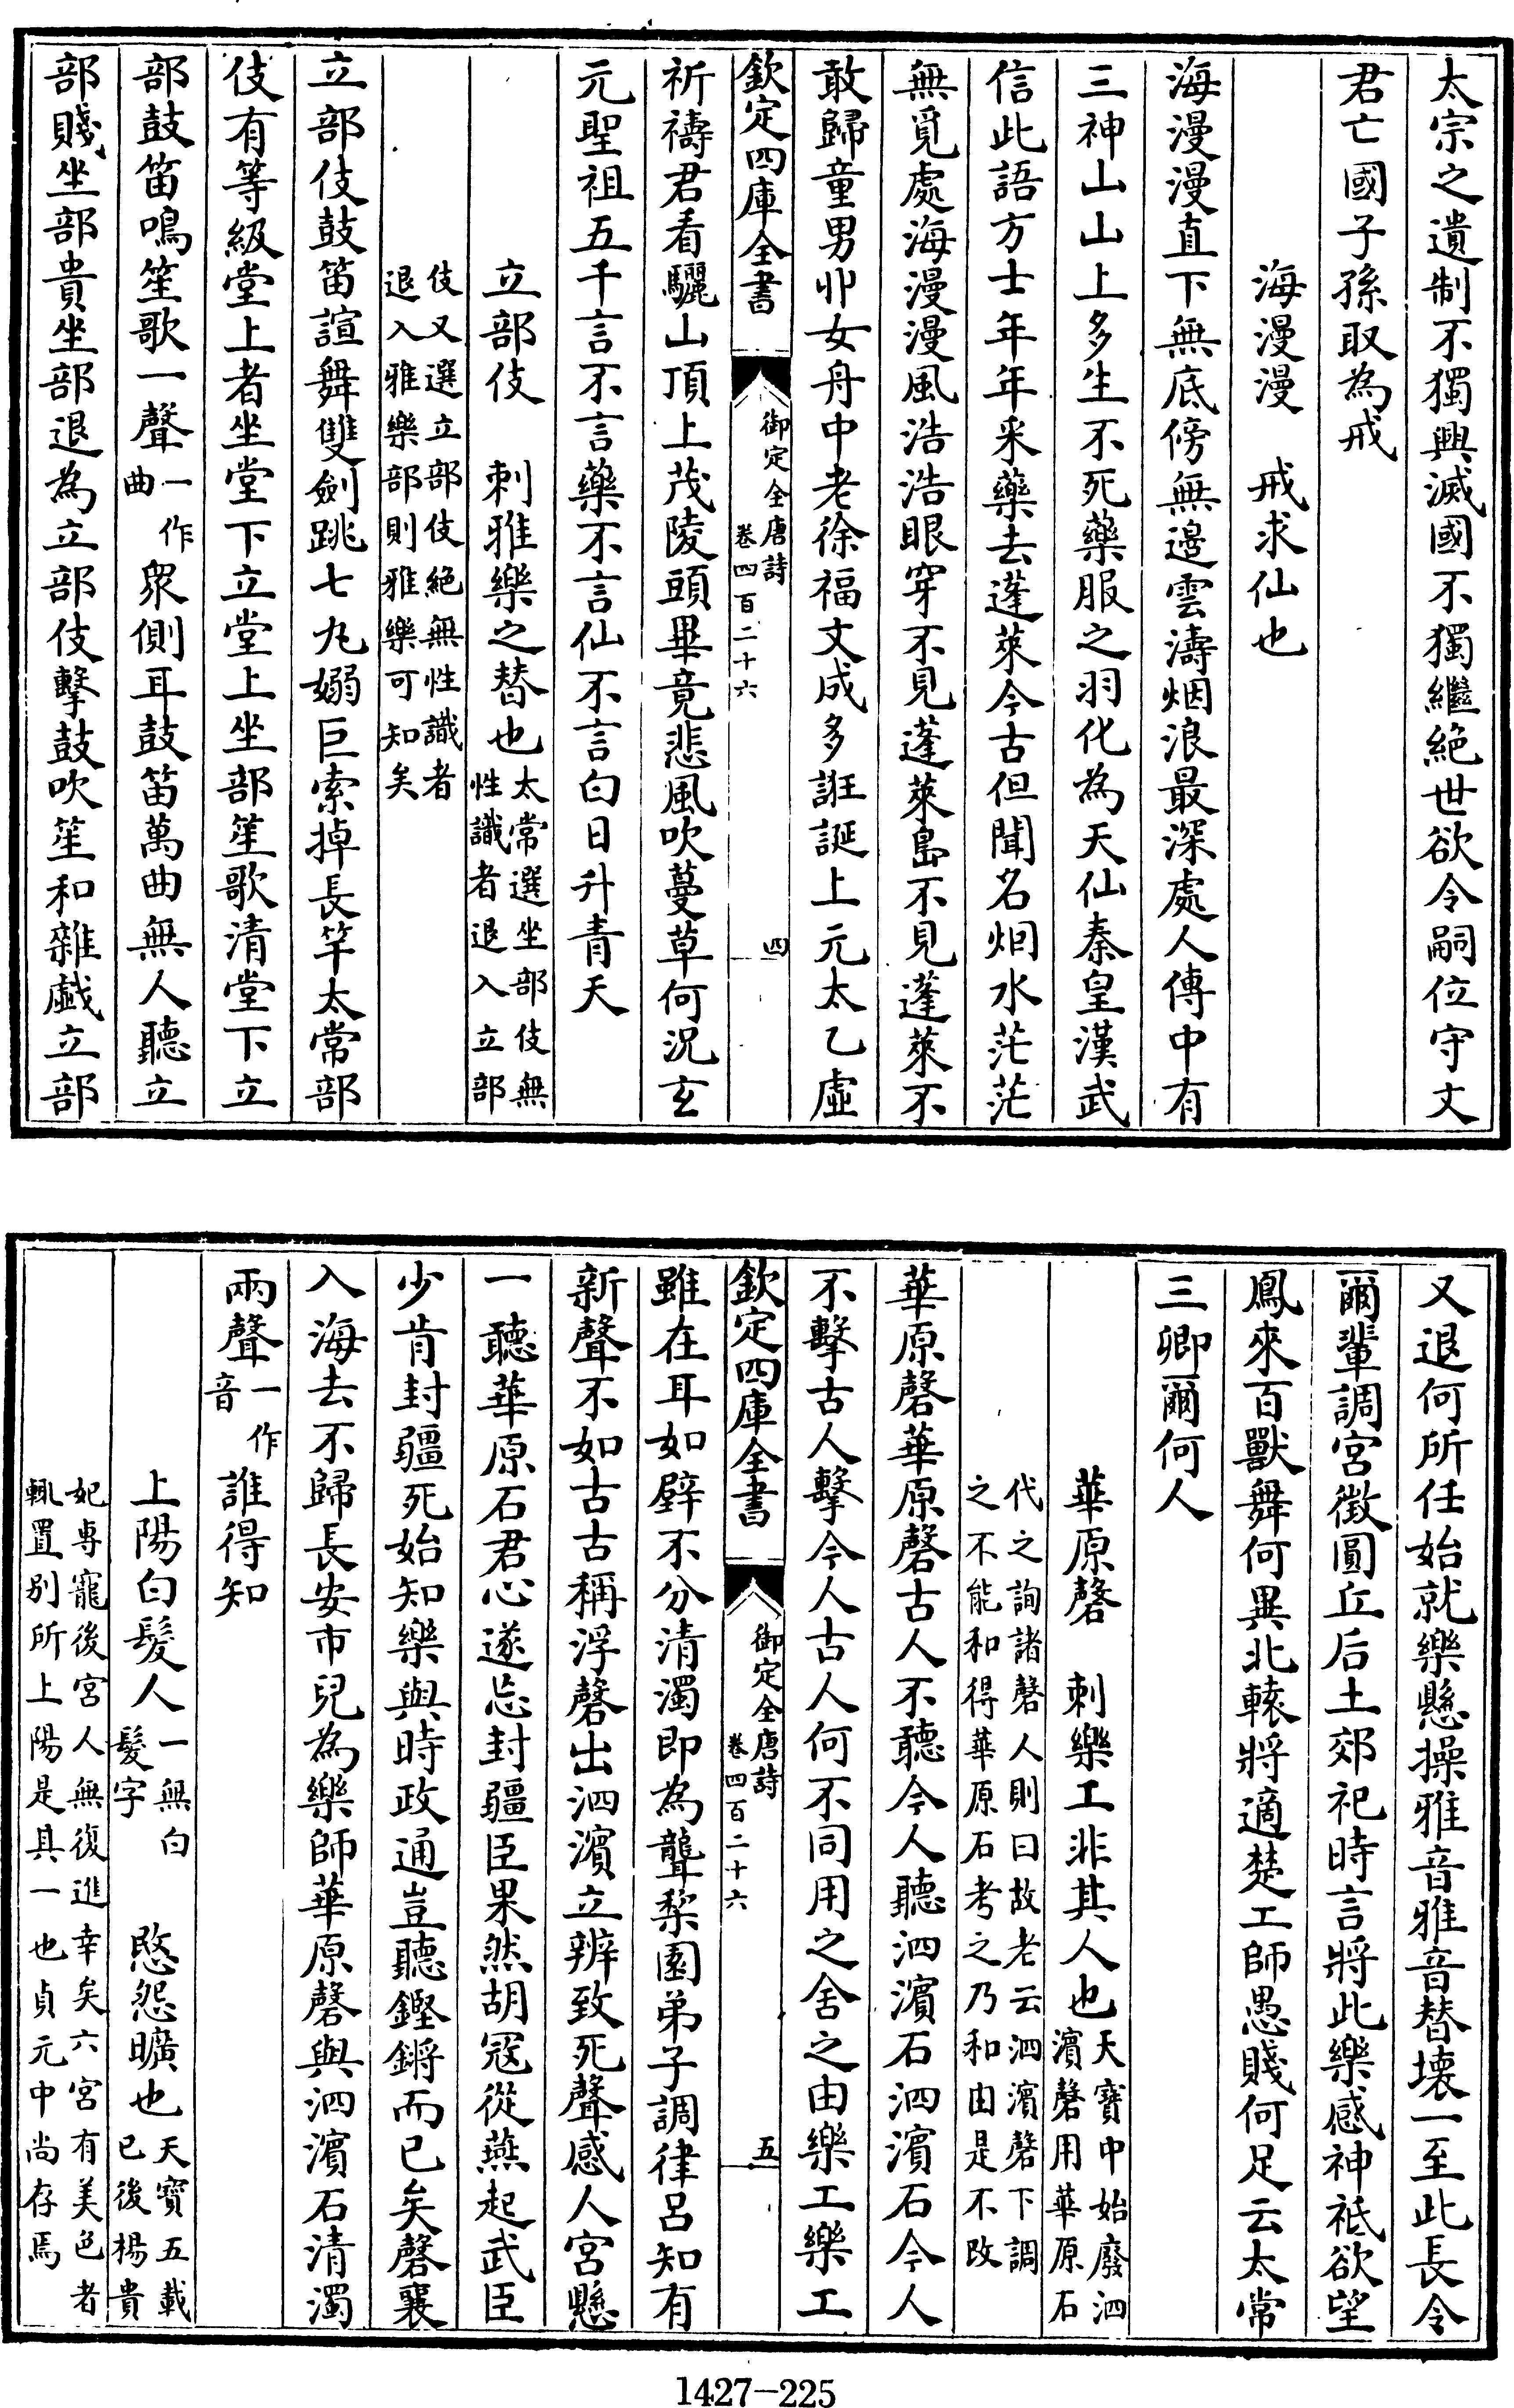 太宗之遺制不獨興滅國不獨繼絶世欲令嗣位守文
君亡國子孫取為戒
海漫漫　戒求仙也
海漫漫直下無底傍無邉雲濤烟浪最深處人傳中有
三神山山上多生不死藥服之羽化為天仙秦皇漢武
信此語方士年年采藥去蓬萊今古但聞名烟水茫茫
無覓處海漫漫風浩浩眼穿不見蓬萊島不見蓬萊不
敢歸童男丱女舟中老徐福文成多誑誕上元太乙虛
欽定四庫全書
御定全唐詩
卷四百二十六
四
祈禱君看驪山頂上茂陵頭畢竟悲風吹蔓草何況玄
元聖祖五千言不言藥不言仙不言白日升青天
立部伎　刺雅樂之替也
太常選坐部伎無
性識者退入立部
伎又選立部伎絶無性識者
退入雅樂部則雅樂可知矣
立部伎鼓笛諠舞雙劍跳七丸嫋巨索掉長竿太常部
伎有等級堂上者坐堂下立堂上坐部笙歌清堂下立
部鼓笛鳴笙歌一聲一作曲衆側耳鼓笛萬曲無人聽立
部賤坐部貴坐部退為立部伎擊鼓吹笙和雜戲立部
又退何所任始就樂懸操雅音雅音替壊一至此長令
爾輩調宮徴圓丘后土郊祀時言將此樂感神祇欲望
鳳來百獸舞何異北轅將適楚工師愚賤何足云太常
三卿爾何人
華原磬　刺樂工非其人也
天寶中始廢泗
濱磬用華原石
代之詢諸磬人則曰故老云泗濱磬下調
之不能和得華原石考之乃和由是不改
華原磬華原磬古人不聽今人聽泗濱石泗濱石今人
不擊古人擊今人古人何不同用之舍之由樂工樂工
欽定四庫全書
御定全唐詩
卷四百二十六
五
雖在耳如壁不分清濁即為聾梨園弟子調律呂知有
新聲不如古古稱浮磬出泗濱立辨致死聲感人宮懸
一聽華原石君心遂忘封疆臣果然胡寇從燕起武臣
少肯封疆死始知樂與時政通豈聽鏗鏘而已矣磬襄
入海去不歸長安市兒為樂師華原磬與泗濱石清濁
兩聲一作音誰得知
上陽白髮人一無白髮字　愍怨曠也
天寶五載
已後楊貴
妃専寵後宮人無復進幸矣六宮有美色者
輒置别所上陽是其一也貞元中尚存焉
1427-225